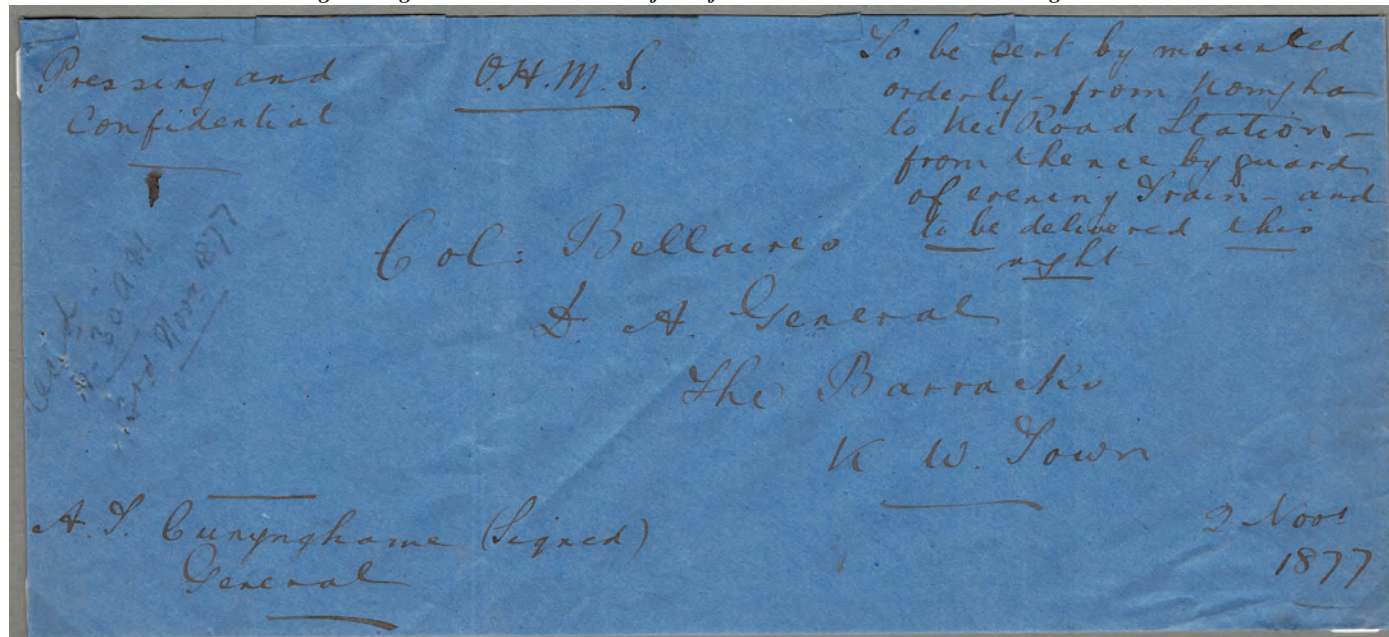 Pressing and
Confidential
O.H.M.S.
To be sent by mounted
orderly - from Komgha
to Kei Road Station -
from thence by guard
of evening Train - and
to be delivered this
night -
Col: Bellairs
D. A. General
The Barracks
K. W. Town
30 A.M.
3rd Novr 1877
A. T. Cunynghame (Signed)
General
2 Novr
1877